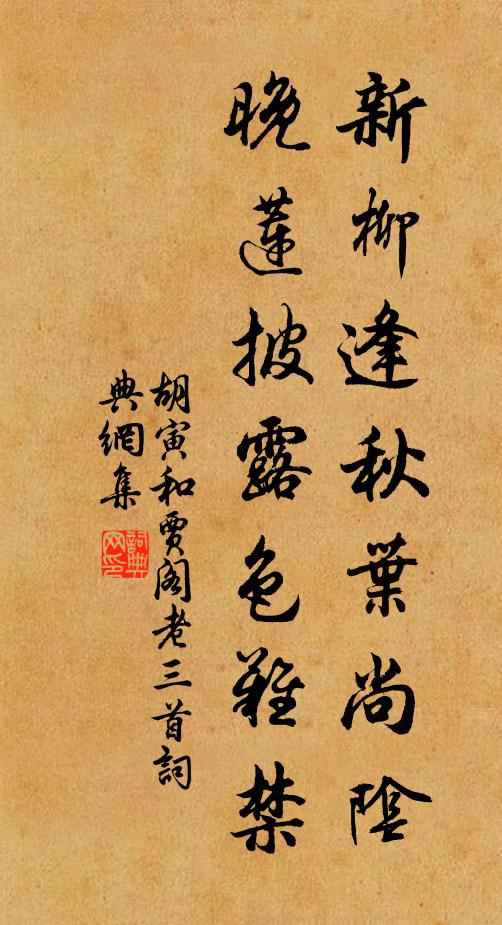 新柳逢秋葉尚陰
晚蓮披露色難禁
胡寅和賈閣老三首詞
典網集
詞典
网印